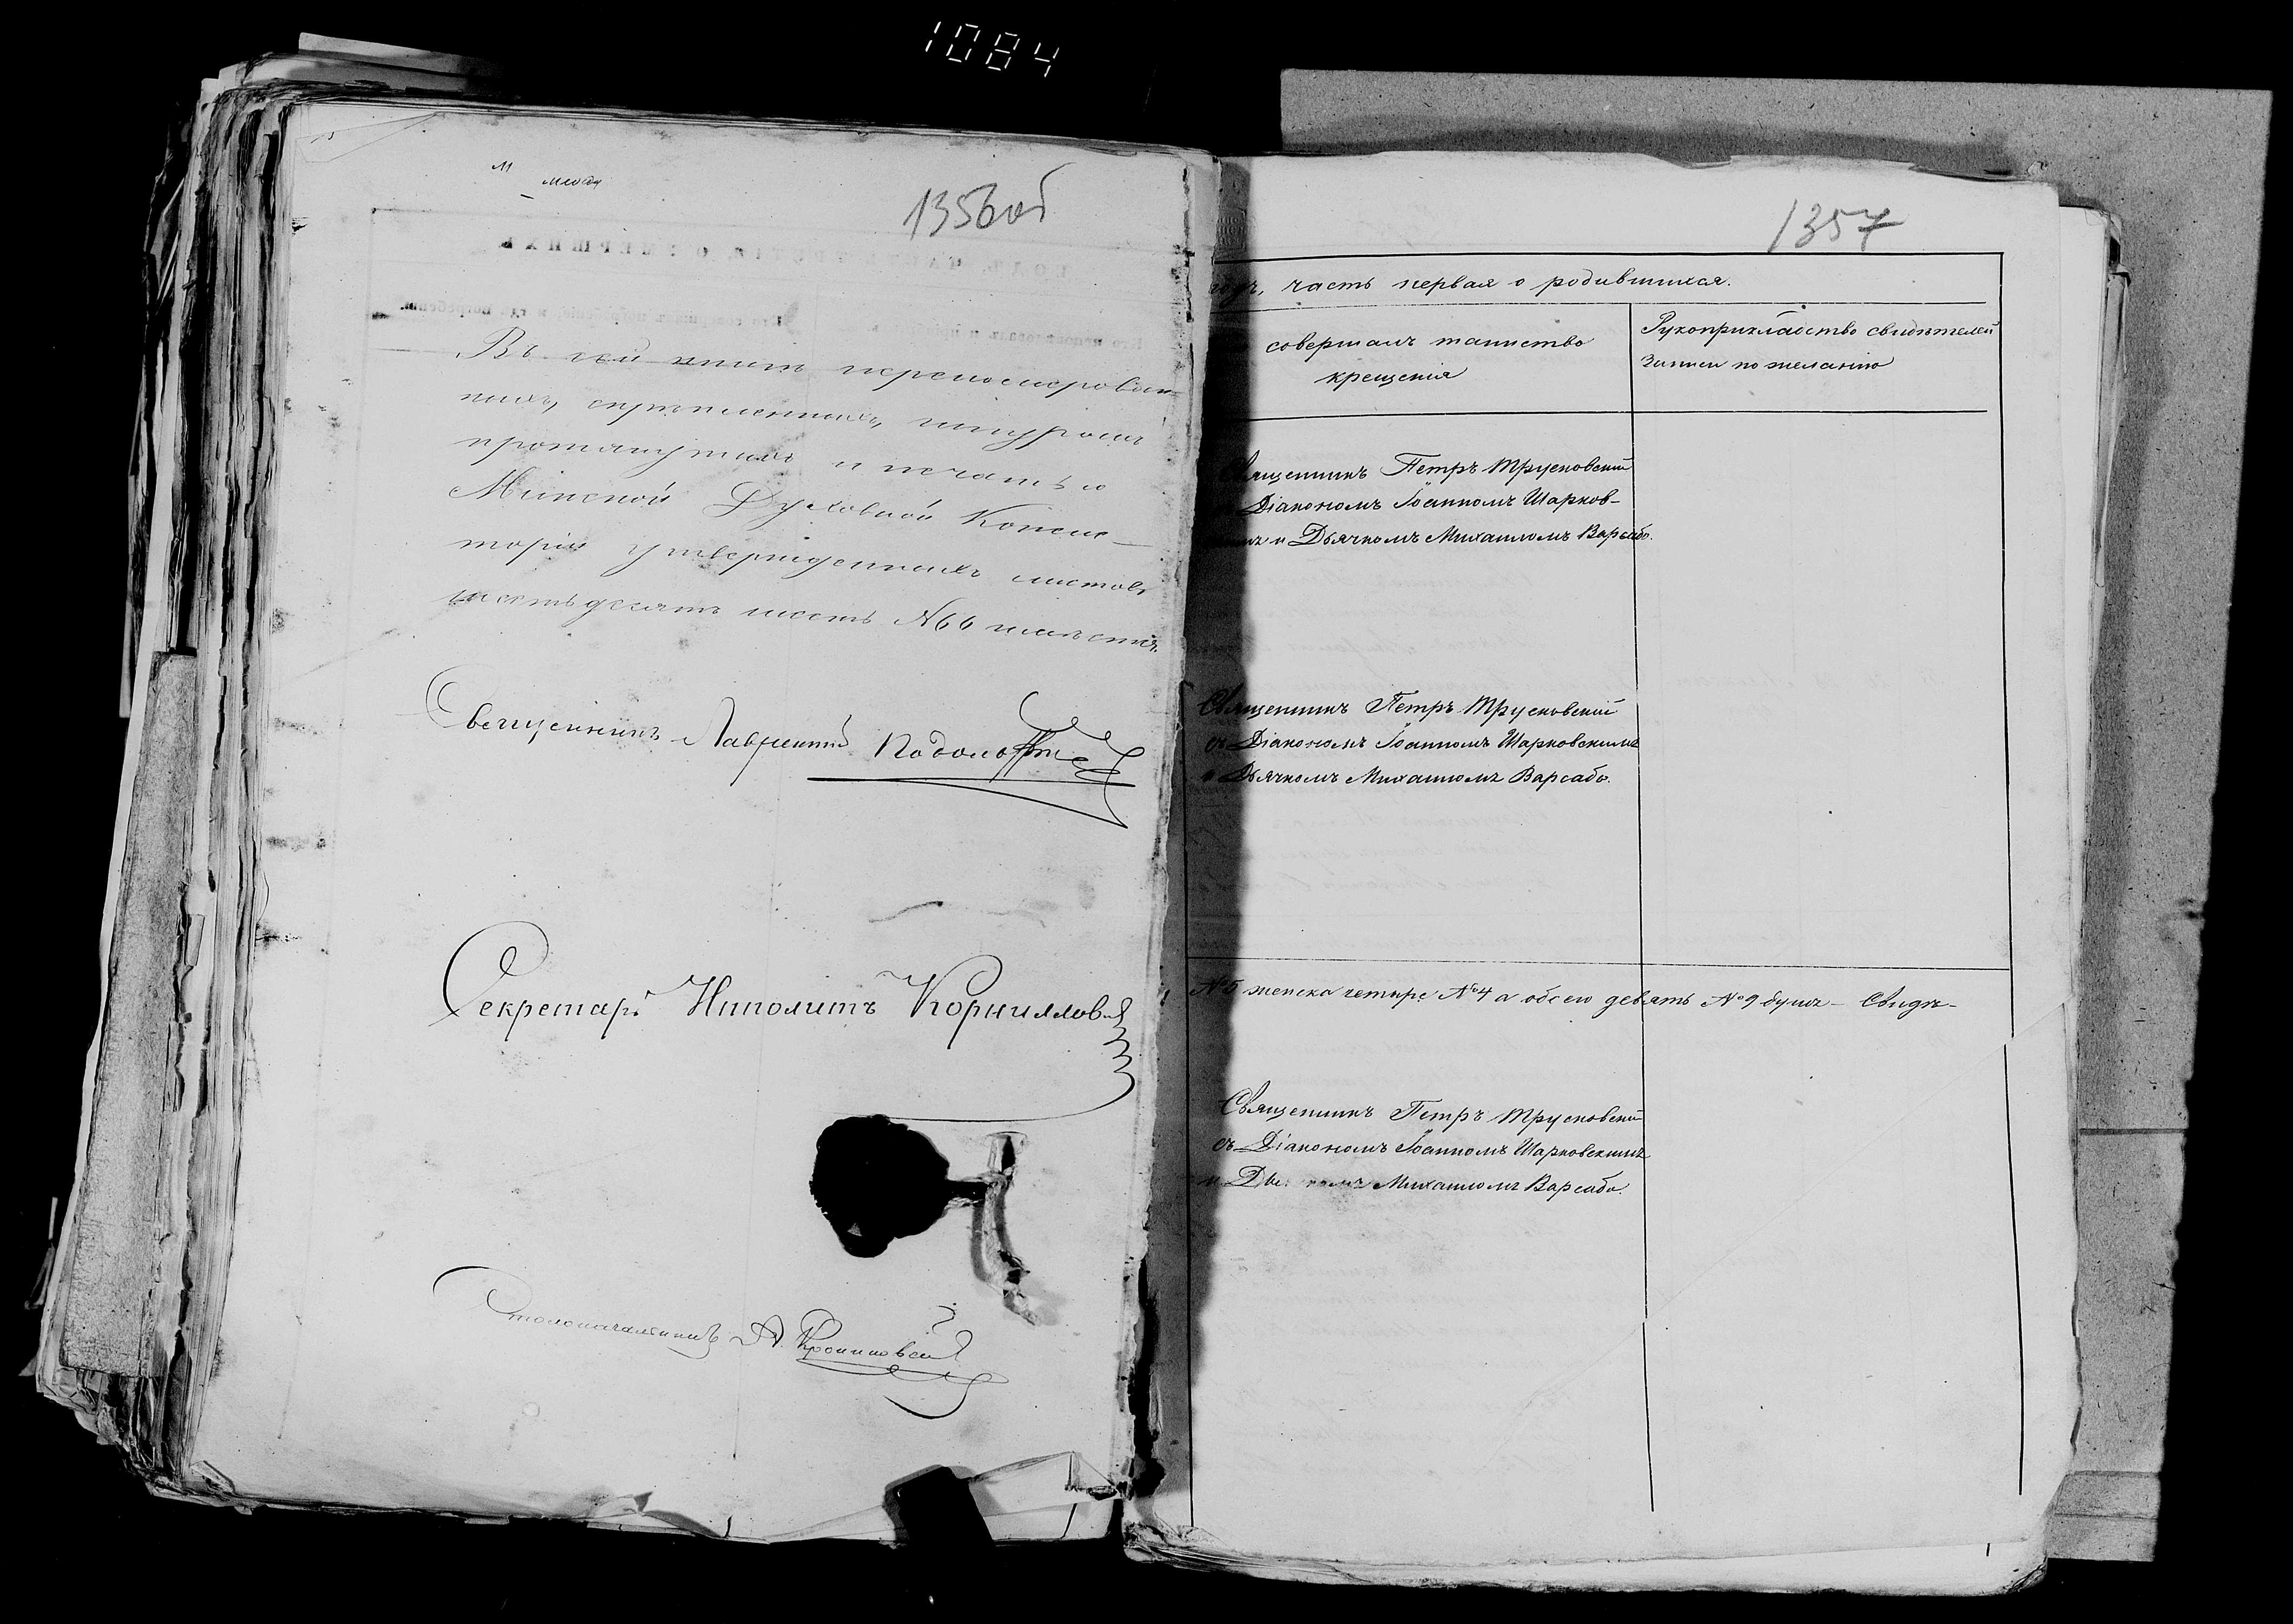 1084
1356 об
Въ сей книгѣ перенумерован-
ныхъ, скрѣпленныхъ, шнуромъ
протянутыхъ и печатью
Минской Духовной Консис-
торіи утвержденныхъ листовъ
шестьдесятъ шесть №66
Священникъ Лаврентий
Секретарь Ипполитъ Корниллов
Столоначальникъ А.
1357
годъ, часть первая о родившихся.
совершалъ таинство
крещенія
Рукоприкладство свидѣтелей
записи по желанію
Священникъ Петръ Трусковский
Діакономъ Іоанномъ Шарков-
и Дьячкомъ Михаиломъ Варсабо.
Священникъ Петръ Трусковский
съ Діакономъ Іоанномъ Шарковскимъ
и Дьячкомъ Михаиломъ Варсабо.
№5 женска четыре №4 а обоего девять №9 душъ – Свидѣ-
Священникъ Петръ Трусковский
съ Діакономъ Іоанномъ Шарковскимъ
и Михаиломъ Варсабо.